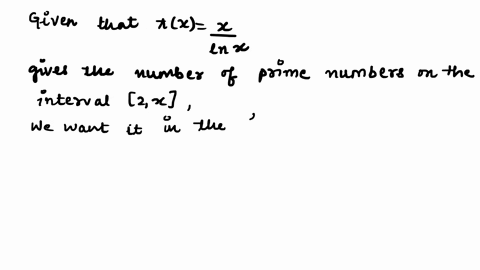 Given that π(x) = x/ln x
gives the number of prime numbers on the
interval [2,x],
We want it in the ,